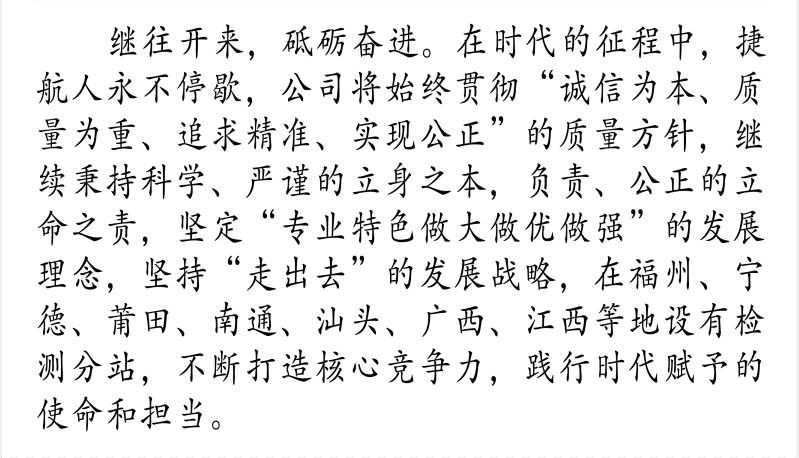 继往开来，砥砺奋进。在时代的征程中，捷
航人永不停歇，公司将始终贯彻“诚信为本、质
量为重、追求精准、实现公正”的质量方针，继
续秉持科学、严谨的立身之本，负责、公正的立
命之责，坚定“专业特色做大做优做强”的发展
理念，坚持“走出去”的发展战略，在福州、宁
德、莆田、南通、汕头、广西、江西等地设有检
测分站，不断打造核心竞争力，践行时代赋予的
使命和担当。